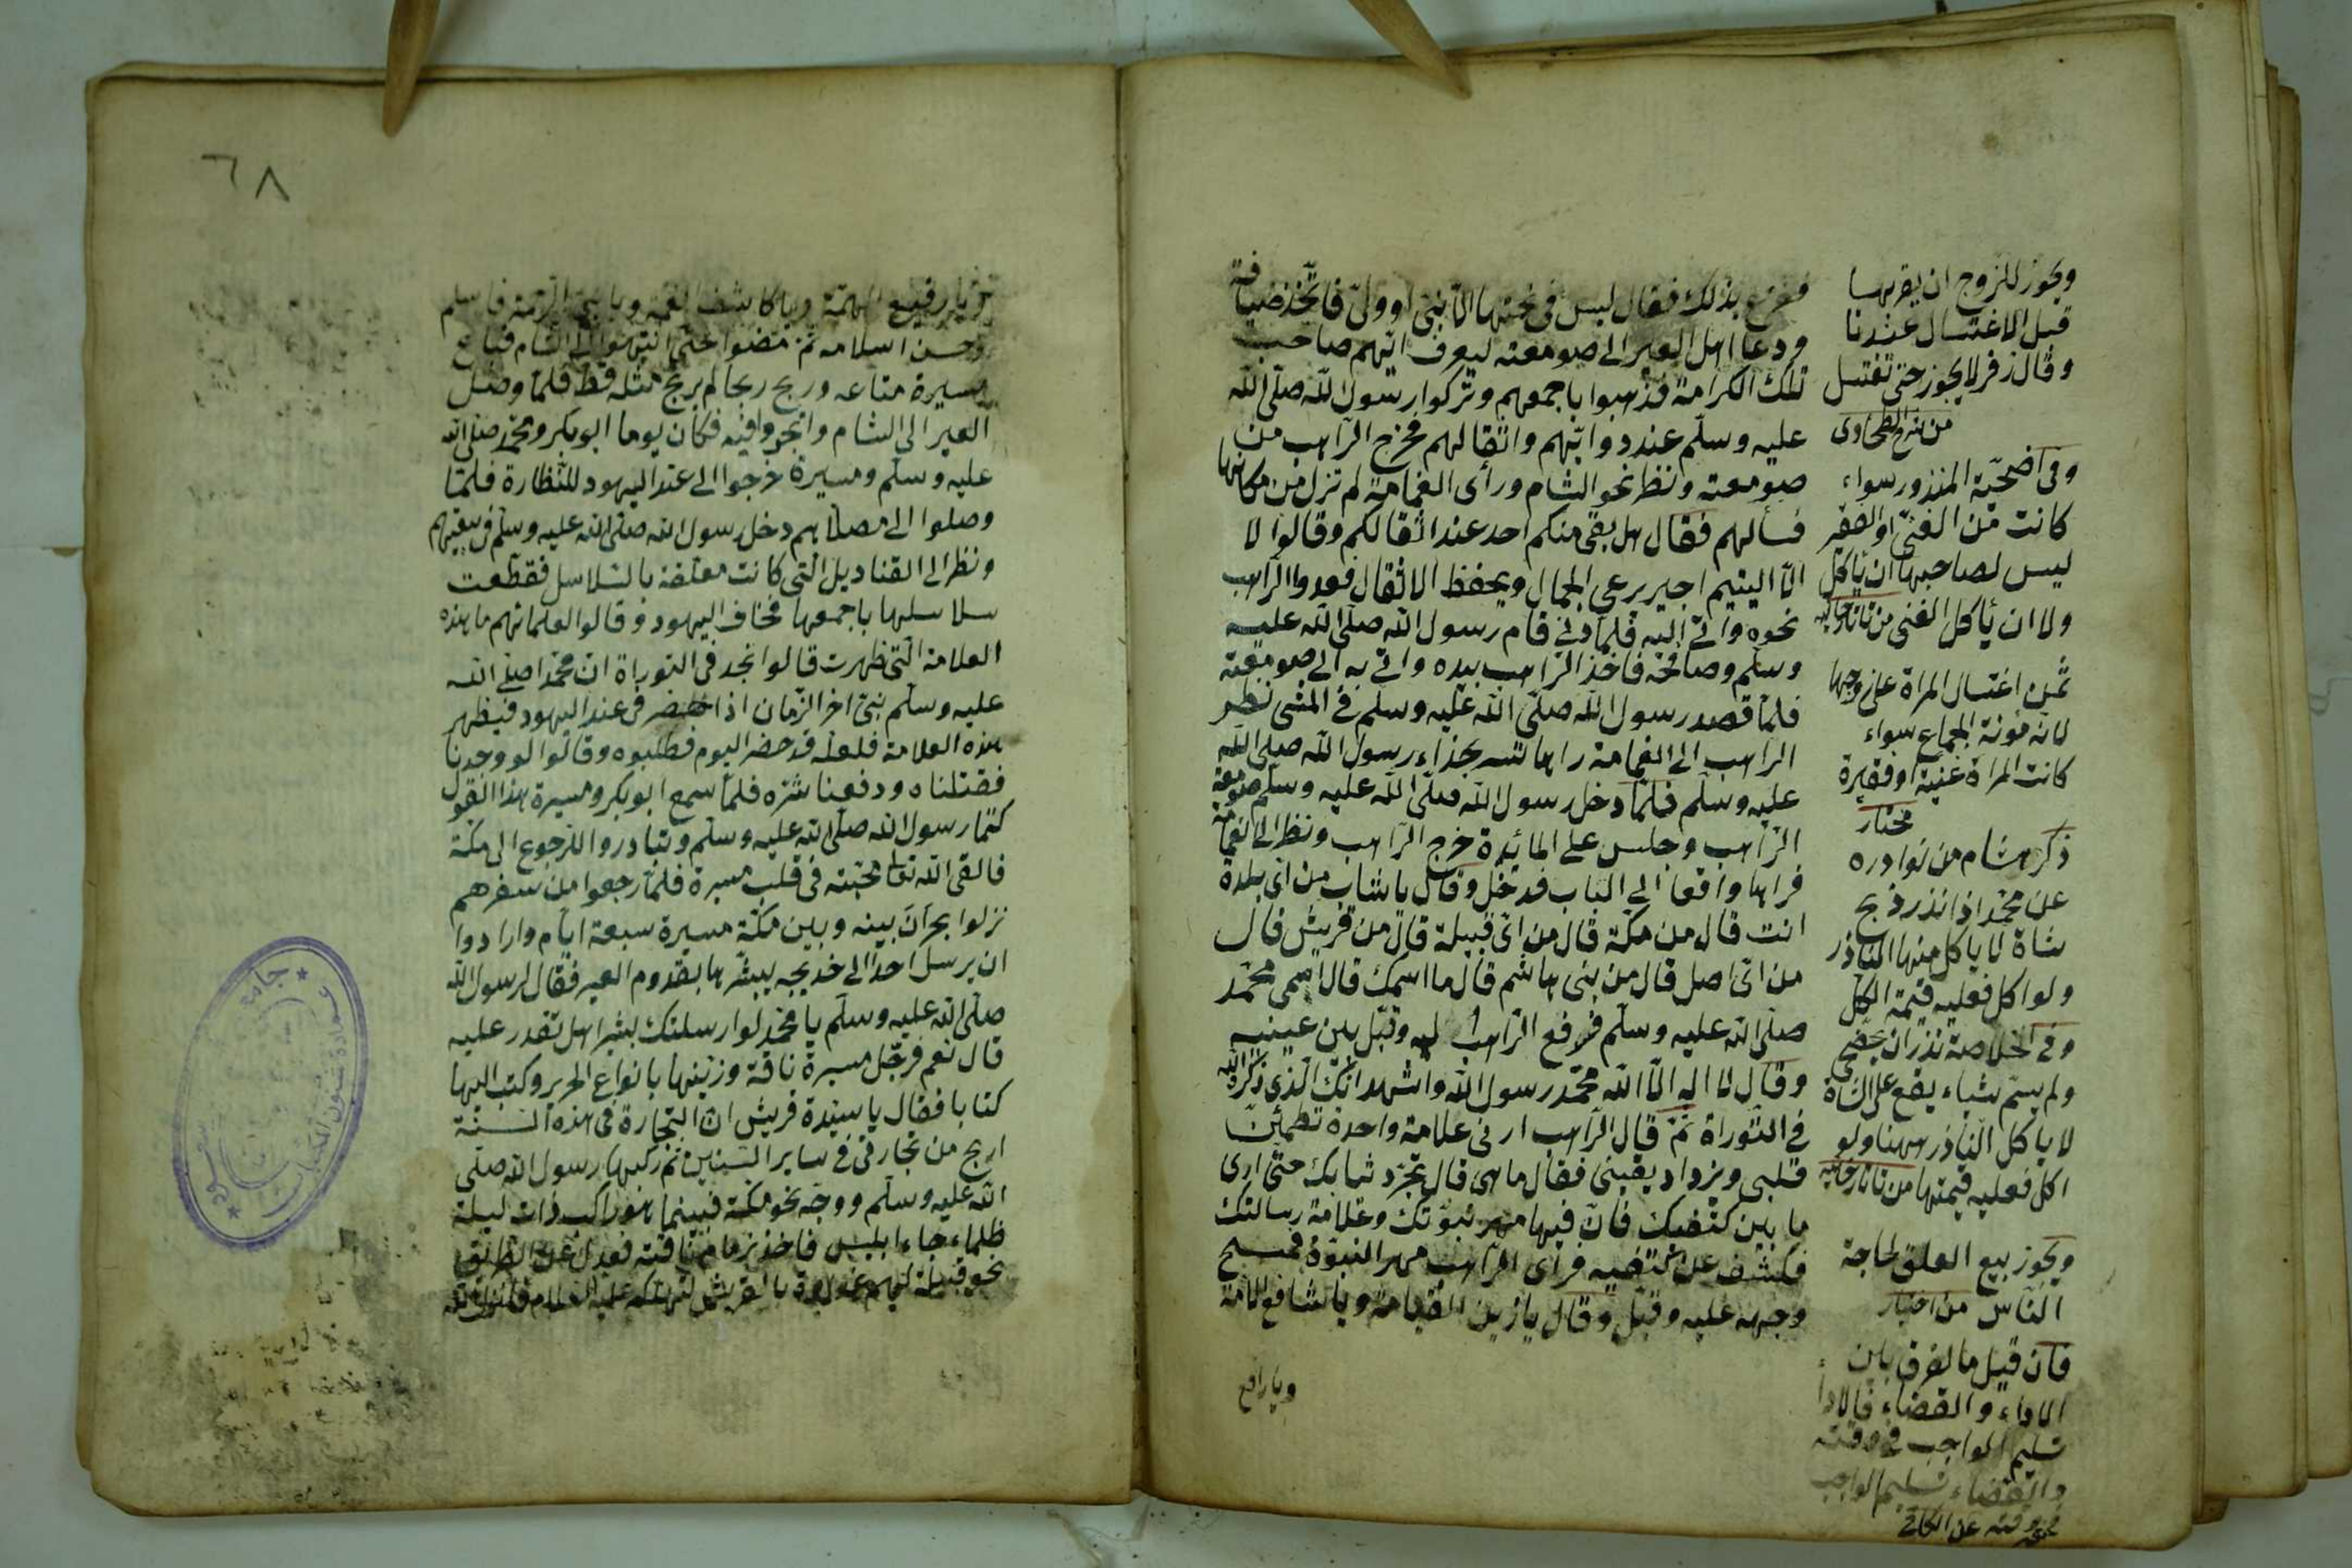 بذلك فقال ليس فى تحتها الا نبى او ولى فاتخذ ضيافة
ودعا اهل العير الى صومعته ليعرف ايهم صاحب
تلك الكرامة فذهبوا باجمعهم وتركوا رسول الله صلى الله
عليه وسلم عند دوابهم واثقالهم فخرج الراهب من
صومعته ونظر نحو الشام ورأى الغمامة لم تزل من مكانها
فسألهم فقال هل بقى منكم احد عند اثقالكم وقالوا لا
الا اليتيم اجير يرعى الجمال ويحفظ الاثقال فعدوا الراهب
نحوه واتى اليه فلما دنى قام رسول الله صلى الله عليه
وسلم وصافحه فاخذ الراهب بيده واتى به الى صومعته
فلما قصد رسول الله صلى الله عليه وسلم فى المشى نظر
الراهب الى الغمامة راها تسير بحذاء رسول الله صلى الله
عليه وسلم فلما دخل رسول الله صلى الله عليه وسلم صومعة
الراهب وجلس على المائدة خرج الراهب ونظر الى الغمامة
فراها واقفا الى الباب فدخل وقال يا شاب من اى بلدة
انت قال من مكة قال من اى قبيلة قال من قريش قال
من اى اصل قال من بنى هاشم قال ما اسمك قال اسمى محمد
صلى الله عليه وسلم الراهب اليه وقبل بين عينيه
وقال لا اله الا الله محمد رسول الله واشهد انك الذى ذكره الله
فى التوراة ثم قال الراهب ارنى علامة واحدة تطمئن
قلبى ويزداد يقينى فقال ما هى قال تجرد ثيابك حتى ارى
ما بين كتفيك فان فيها مهر نبوتك وعلامة رسالتك
فكشف عن كتفيه فرأى الراهب مهر النبوة فمسح
وجهه عليه وقبل وقال يا زين القيامة ويا شافع الامة
ويا رافع
ويجوز للزوج ان يقربها
قبل الاغتسال عندنا
وقال زفر لا يجوز حتى تغتسل
من شرح الطحاوى
وفى اضحية المنذور سواء
كانت من الغنى او الفقير
ليس لصاحبها ان يأكل
ولا ان يأكل الغنى من تاتارخانيه
ثمن اغتسال المرأة على زوجها
لانه مؤنة الجماع سواء
كانت المراة غنية او فقيرة
مختار
ذكر هشام من نوادره
عن محمد اذا نذر ذبح
شاة لا ياكل منها الناذر
ولو اكل فعليه قيمة الكل
وفى الخلاصة نذر ان يضحى
ولم يسم شياء يقع على الشاة
لا ياكل الناذر منها ولو
اكل فعليه قيمتها من تاتارخانيه
ويجوز بيع العلق لحاجة
الناس من اختيار
فان قيل ما الفرق بين
الاداء والقضاء فالاداء
تسليم الواجب فى وقته
والقضاء تسليم الواجب
٦٨
يا رفيع الهمة ويا كاشف الغمة ويا نبى الرحمة فاسلم
وحسن اسلامه ثم مضوا حتى انتهوا الى الشام فباع
ميسرة متاعه وربح ربحا لم يربح مثله قط فلما وصل
العير الى الشام واتجروا فيه فكان يوما ابو بكر ومحمد صلى الله
عليه وسلم وميسرة خرجوا الى عند اليهود للنظارة فلما
وصلوا الى مصلاهم دخل رسول الله صلى الله عليه وسلم فى بيتهم
ونظر الى القناديل التى كانت معلقة بالسلاسل فقطعت
سلاسلها باجمعها فخاف اليهود وقالوا لعلمائهم ما هذه
العلامة التى ظهرت قالوا نجد فى التوراة ان محمدا صلى الله
عليه وسلم نبى اخر الزمان اذا حضر فى عند اليهود فيظهر
هذه العلامة فلعله قد حضر اليوم فطلبوه وقالوا لو وجدنا
فقتلناه ودفعنا شره فلما سمع ابو بكر وميسرة هذا القول
كتما رسول الله صلى الله عليه وسلم وتبادروا للرجوع الى مكة
فالقى الله تعالى محبته فى قلب ميسرة فلما رجعوا من سفرهم
نزلوا بحران بينه وبين مكة مسيرة سبعة ايام وارادوا
ان يرسل احدا الى خديجه يبشرها بقدوم العير فقال لرسول الله
صلى الله عليه وسلم يا محمد لو ارسلتك بشيرا هل تقدر عليه
قال نعم فرحل ميسرة ناقة وزينها بانواع الحرير وكتب اليها
كتابا فقال يا سيدة قريش ان التجارة فى هذه السنة
اربح من تجارتى فى ساير السنين ثم ركبها رسول الله صلى
الله عليه وسلم ووجه نحو مكة فبينما هو راكب ذات ليلة
ظلماء جاء ابليس فاخذ زمام ناقته فعدل عن الطريق